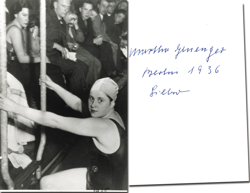 Martha Genenger
Berlin 1936
Silber